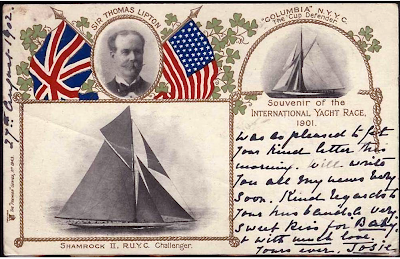 SIR THOMAS LIPTON
"COLUMBIA" N.Y.Y.C.
The Cup Defender.
Souvenir of the
INTERNATIONAL YACHT RACE,
1901.
27th August 1902
Was so pleased to get
your kind letter this
morning. Will write
you all my news very
soon. Kind regards to
your husband & very
sweet kiss for Baby
& with much love.
Yours ever. Josie
SHAMROCK II. R.U.Y.C. Challenger.